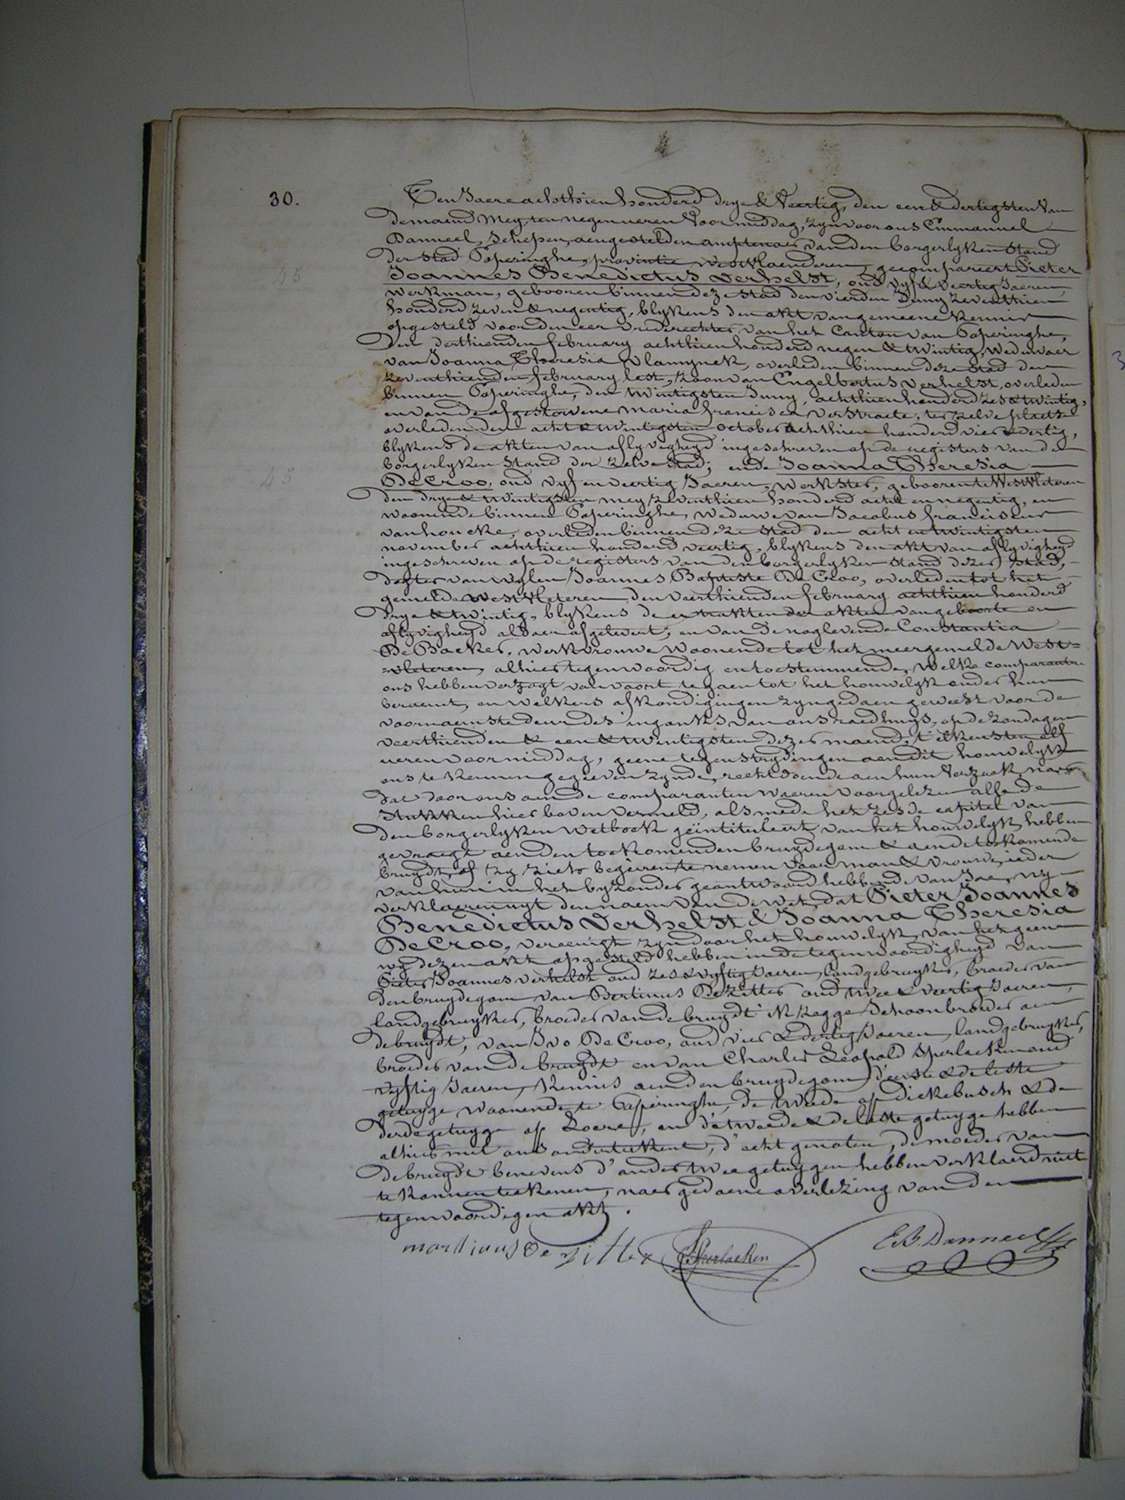 30.
Ten Jaere achthien honderd drye & Veertig, den een & dertigsten Van
de maend Mey, ten negen ueren Voormiddag, zyn voor ons Emmanuel
Danneel, Schepen, aengestelden amptenaer van den borgerlyken Stand
der Stad Poperinghe, provintie Westvlaenderen, gecompareert Pieter
Joannes Benedictus Verhelst, oud vyf & veertig Jaeren,
Werkman, gebooren binnen deze Stad den vierden Juny zeventhien
honderd zeven & negentig, blykens den akt van gemeene kennis
opgesteld voor den eer Vrederechter van het Canton van Poperinghe,
den derthienden february achthien honderd negen & twintig, Weduwaer
van Joanna Theresia Vlamynck, overleden binnen deze Stad den
zeventhienden february lest, zoon van Engelbertus Verhelst, overleden
binnen Poperinghe, den twintigsten Juny achthien honderd zes & twintig,
en van de afgestorvene Maria francisca Verstraete, ter zelve plaetse
overleden den acht & twintigsten october achthien honderd vier & dertig,
blykens de akten van aflyvigheyd ingeschreven op de registers van den
borgerlyken Stand der zelve Stad; ende Joanna Theresia
De Croo, oud vyf en veertig Jaeren, werkster, geboren te Westvleteren
den drye & twintigsten mey zeventhien honderd acht en negentig, en
woonende binnen Poperinghe, Weduwe van Jacobus franciscus
vanhoucke, overleden binnen deze Stad den acht en twintigsten
november achthien honderd veertig, blykens den akt van aflyvigheyd
ingeschreven op de registers van den borgerlyken Stand dezer Stad,
dogter van wylen Joannes Baptiste De Croo, overleden tot het
gemelde Westvleteren, den veerthienden february achthien honderd
drye & twintig, blykens de extrakten der akten van geboorte en
aflyvigheyd aldaer afgelevert, en van de noglevende Constantia
De Backer, werkvrouwe woonende tot het meergemelde West-
vleteren, alhier tegenwoordig en toestemmende, Welke comparanten
ons hebben verzogt van voort te gaen tot het houwelyk onder hun
beraemt, en welkers afkondigingen zyn gedaen geweest voor de
voornaemste deure des ingankx van ons raedhuys, op de zondagen
veerthienden & een & twintigsten dezer maend, t'elkensten elf
ueren voormiddag, geene tegenstrydingen aen dit houwelyk
ons te kennen gegeven zynde, recht doende aen hun Verzoek, naer
dat door ons aen de comparanten waeren voorgelezen alle de
Stukken hier boven vermeld, alsmede het zesde capitel van
den borgerlyken Wetboek geïntituleert van het houwelyk, hebben
gevraegt aen den toekomenden bruydegom & aen de toekomende
bruydt, of zy zich begeeren te nemen voor man & vrouw, ieder
van hun in het byzonder geantwoord hebbende van Jae, wy
verklaeren uyt den naem van de wet, dat Pieter Joannes
Benedictus Verhelst & Joanna Theresia
De Croo, vereenigt zyn door het houwelyk, van het geene
wy dezen akt opgesteld hebben in de tegenwoordigheyd van
Pieter Joannes Verhelst oud zes & vyftig Jaeren, landgebruyker, broeder van
den bruydegom, van Martinus De Zitter oud twee & veertig Jaeren,
landgebruyker, Schoonbroeder aen
de bruydt, van Ivo De Croo, oud vier & dertig Jaeren, landgebruyker,
broeder van de bruydt en van Charles Leopold Sperlaeken oud
vyftig Jaeren, kennis aen den bruydegom, d'eerste & de leste
getuyge woonende te Poperinghe, de tweede op Dickebusch & de
derde getuyge op Locre, en d'tweede & de leste getuyge hebben
alhier met ons onderteekent, d'echtgenoten, de moeder van
de bruydt benevens d'ander twee getuygen hebben verklaerd niet
te konnen teekenen, naer gedaene overlezing van den
tegenwoordigen akt.
martinus De Zitter Sperlaeken E B Danneel